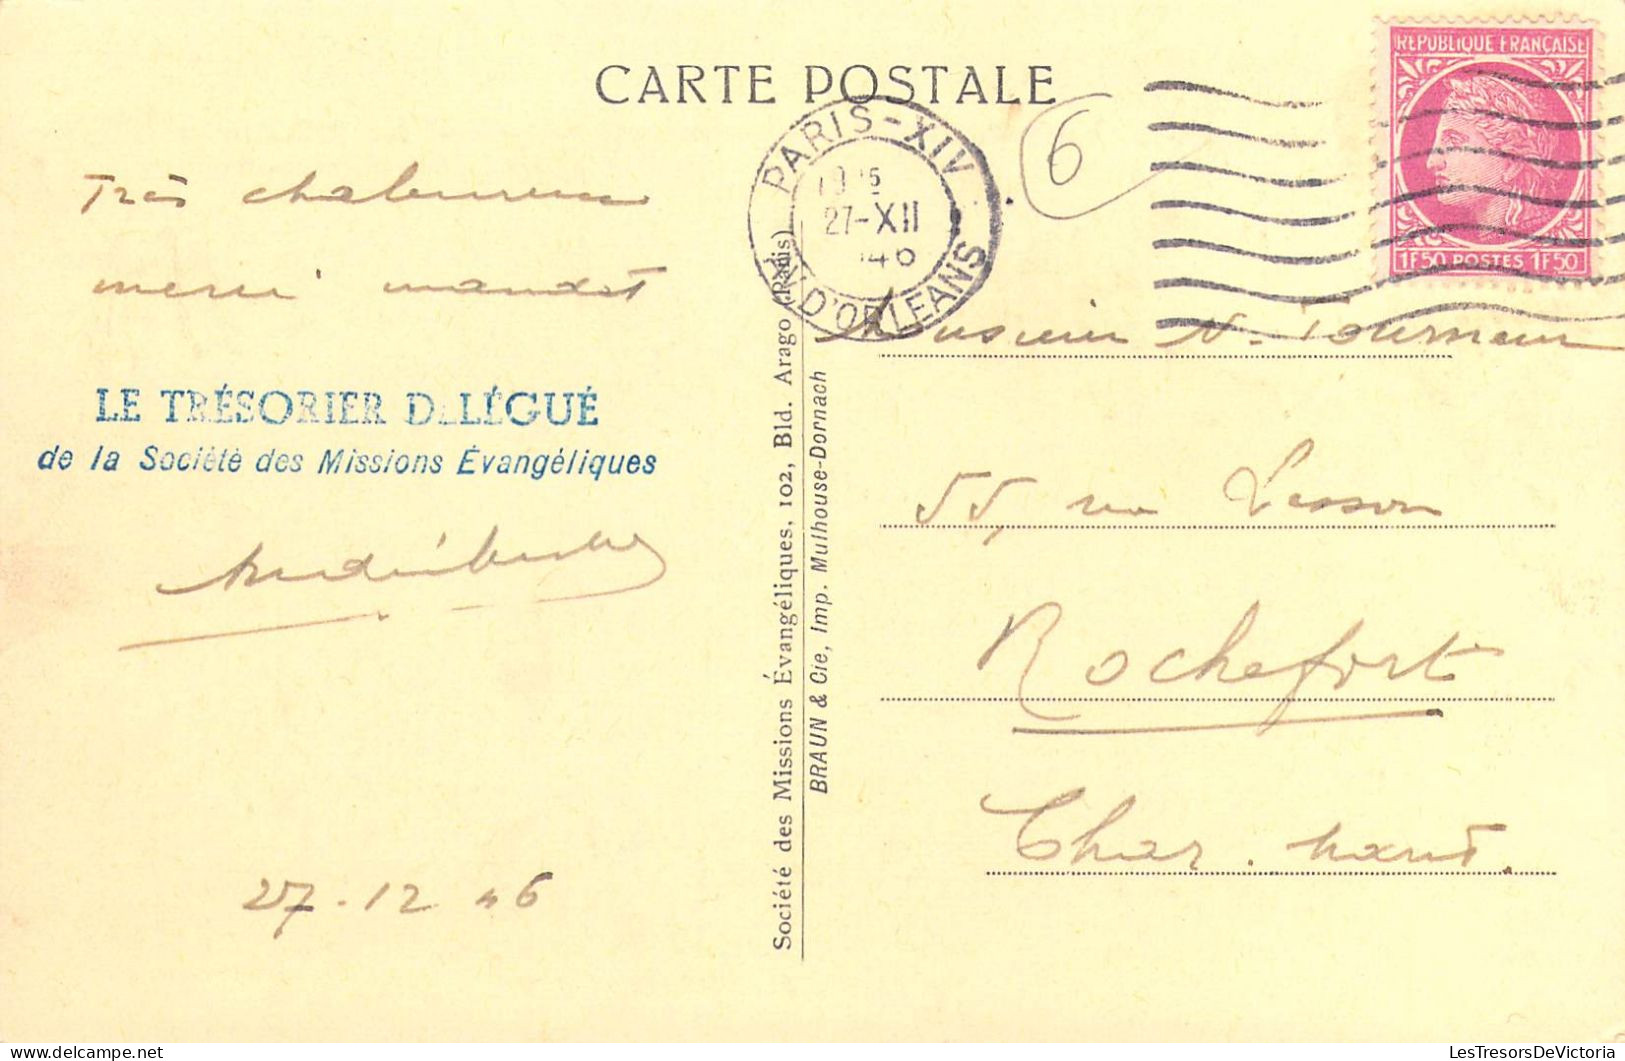 CARTE POSTALE
6
RÉPUBLIQUE FRANÇAISE
1F50 POSTES 1F50
PARIS-XIV
27-XII
46
D'ORLEANS
Très chaleureux
merci mandat
LE TRÉSORIER DÉLÉGUÉ
de la Société des Missions Évangéliques
27-12 46
Société des Missions Évangéliques, 102, Bld. Arago (Paris)
BRAUN & Cie, Imp. Mulhouse-Dornach
Monsieur N. Tourneur
55, rue Lesson
Rochefort
Char. Marit.
LesTresorsDeVictoria